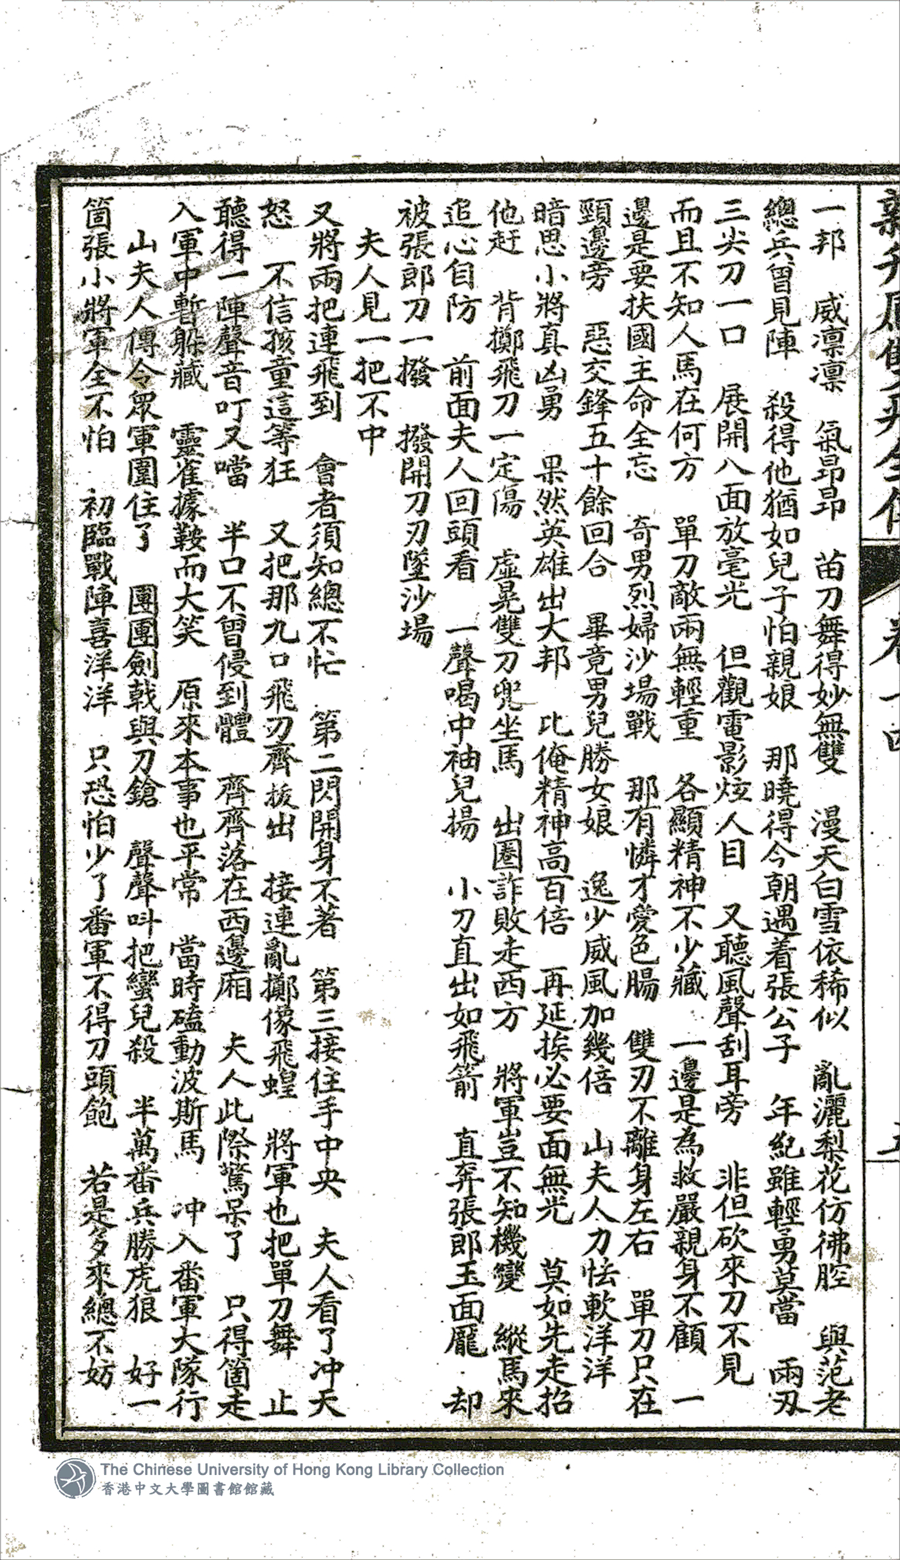 一邦　威凛凛　氣昂昂　苗刀舞得妙無雙　漫天白雪依稀似　亂灑梨花仿彿腔　與范老
總兵曾見陣　殺得他猶如兒子怕親娘　那曉得今朝遇着張公子　年紀雖輕勇莫當　兩刃
三尖刀一口　展開八面放毫光　但觀電影炫人目　又聽風聲刮耳旁　非但砍來刀不見
而且不知人馬在何方　單刀敵兩無輕重　各顯精神不少藏　一邊是為救嚴親身不顧　一
邊是要扶國主命全忘　奇男烈婦沙場戰　那有憐才愛色腸　雙刃不離身左右　單刀只在
頸邊旁　惡交鋒五十餘回合　畢竟男兒勝女娘　逸少威風加幾倍　山夫人力怯軟洋洋
暗思小將真凶勇　果然英雄出大邦　比俺精神高百倍　再延挨必要面無光　莫如先走招
他赶　背擲飛刀一定陽　虛晃雙刀兜坐馬　出圈詐敗走西方　將軍豈不知機變　縱馬來
追心自防　前面夫人回頭看　一聲喝中袖兒揚　小刀直出如飛箭　直奔張郎玉面龐　却
被張郎刀一撥　撥開刀刃墜沙場
夫人見一把不中
又將兩把連飛到　會者須知總不忙　第二閃開身不著　第三接住手中央　夫人看了冲天
怒　不信孩童這等狂　又把那九口飛刃齊拔出　接連亂擲像飛蝗　將軍也把單刀舞　止
聽得一陣聲音叮又噹　半口不曾侵到體　齊齊落在西邊廂　夫人此際驚呆了　只得箇走
入軍中暫躲藏　靈雀據鞍而大笑　原來本事也平常　當時磕動波斯馬　冲入番軍大隊行
山夫人傳令眾軍圍住了　團團劍戟與刀鎗　聲聲呌把蠻兒殺　半萬番兵勝虎狼　好一
箇張小將軍全不怕　初臨戰陣喜洋洋　只恐怕少了番軍不得刀頭飽　若是多來總不妨
卷十四
The Chinese University of Hong Kong Library Collection
香港中文大學圖書館館藏